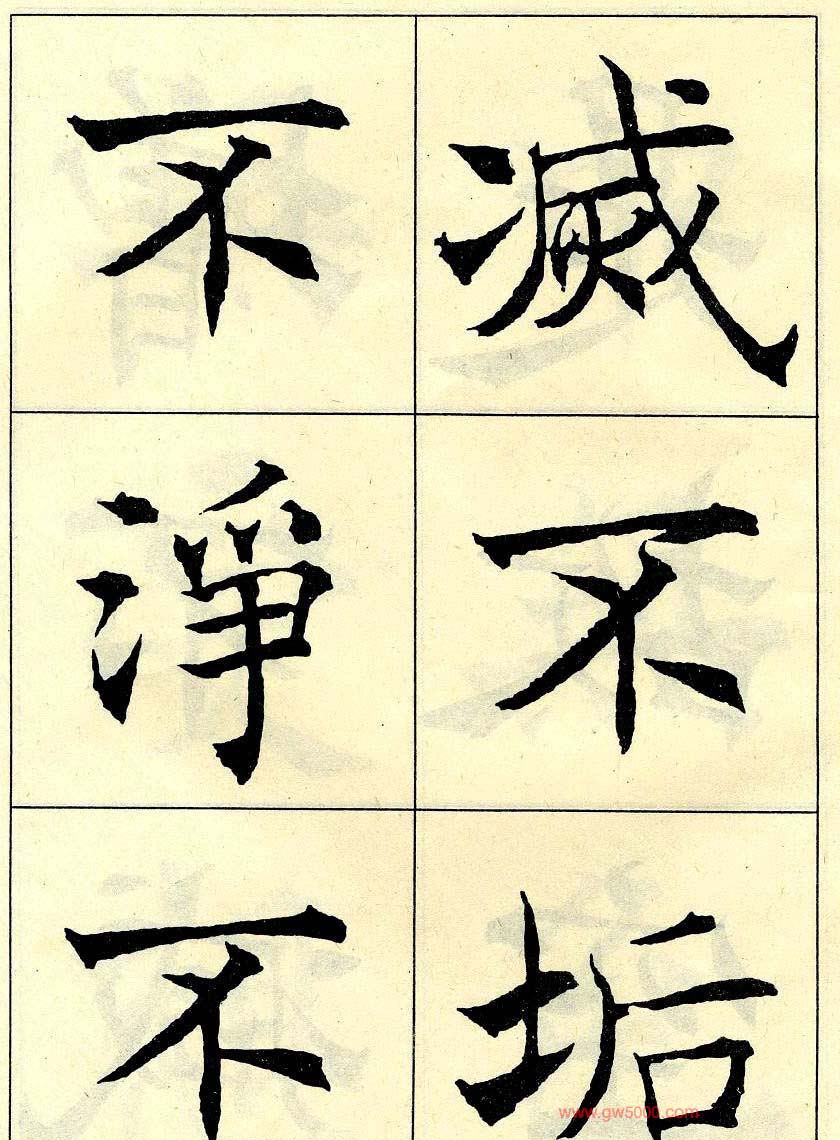 滅不垢
不淨不
www.gw5000.com